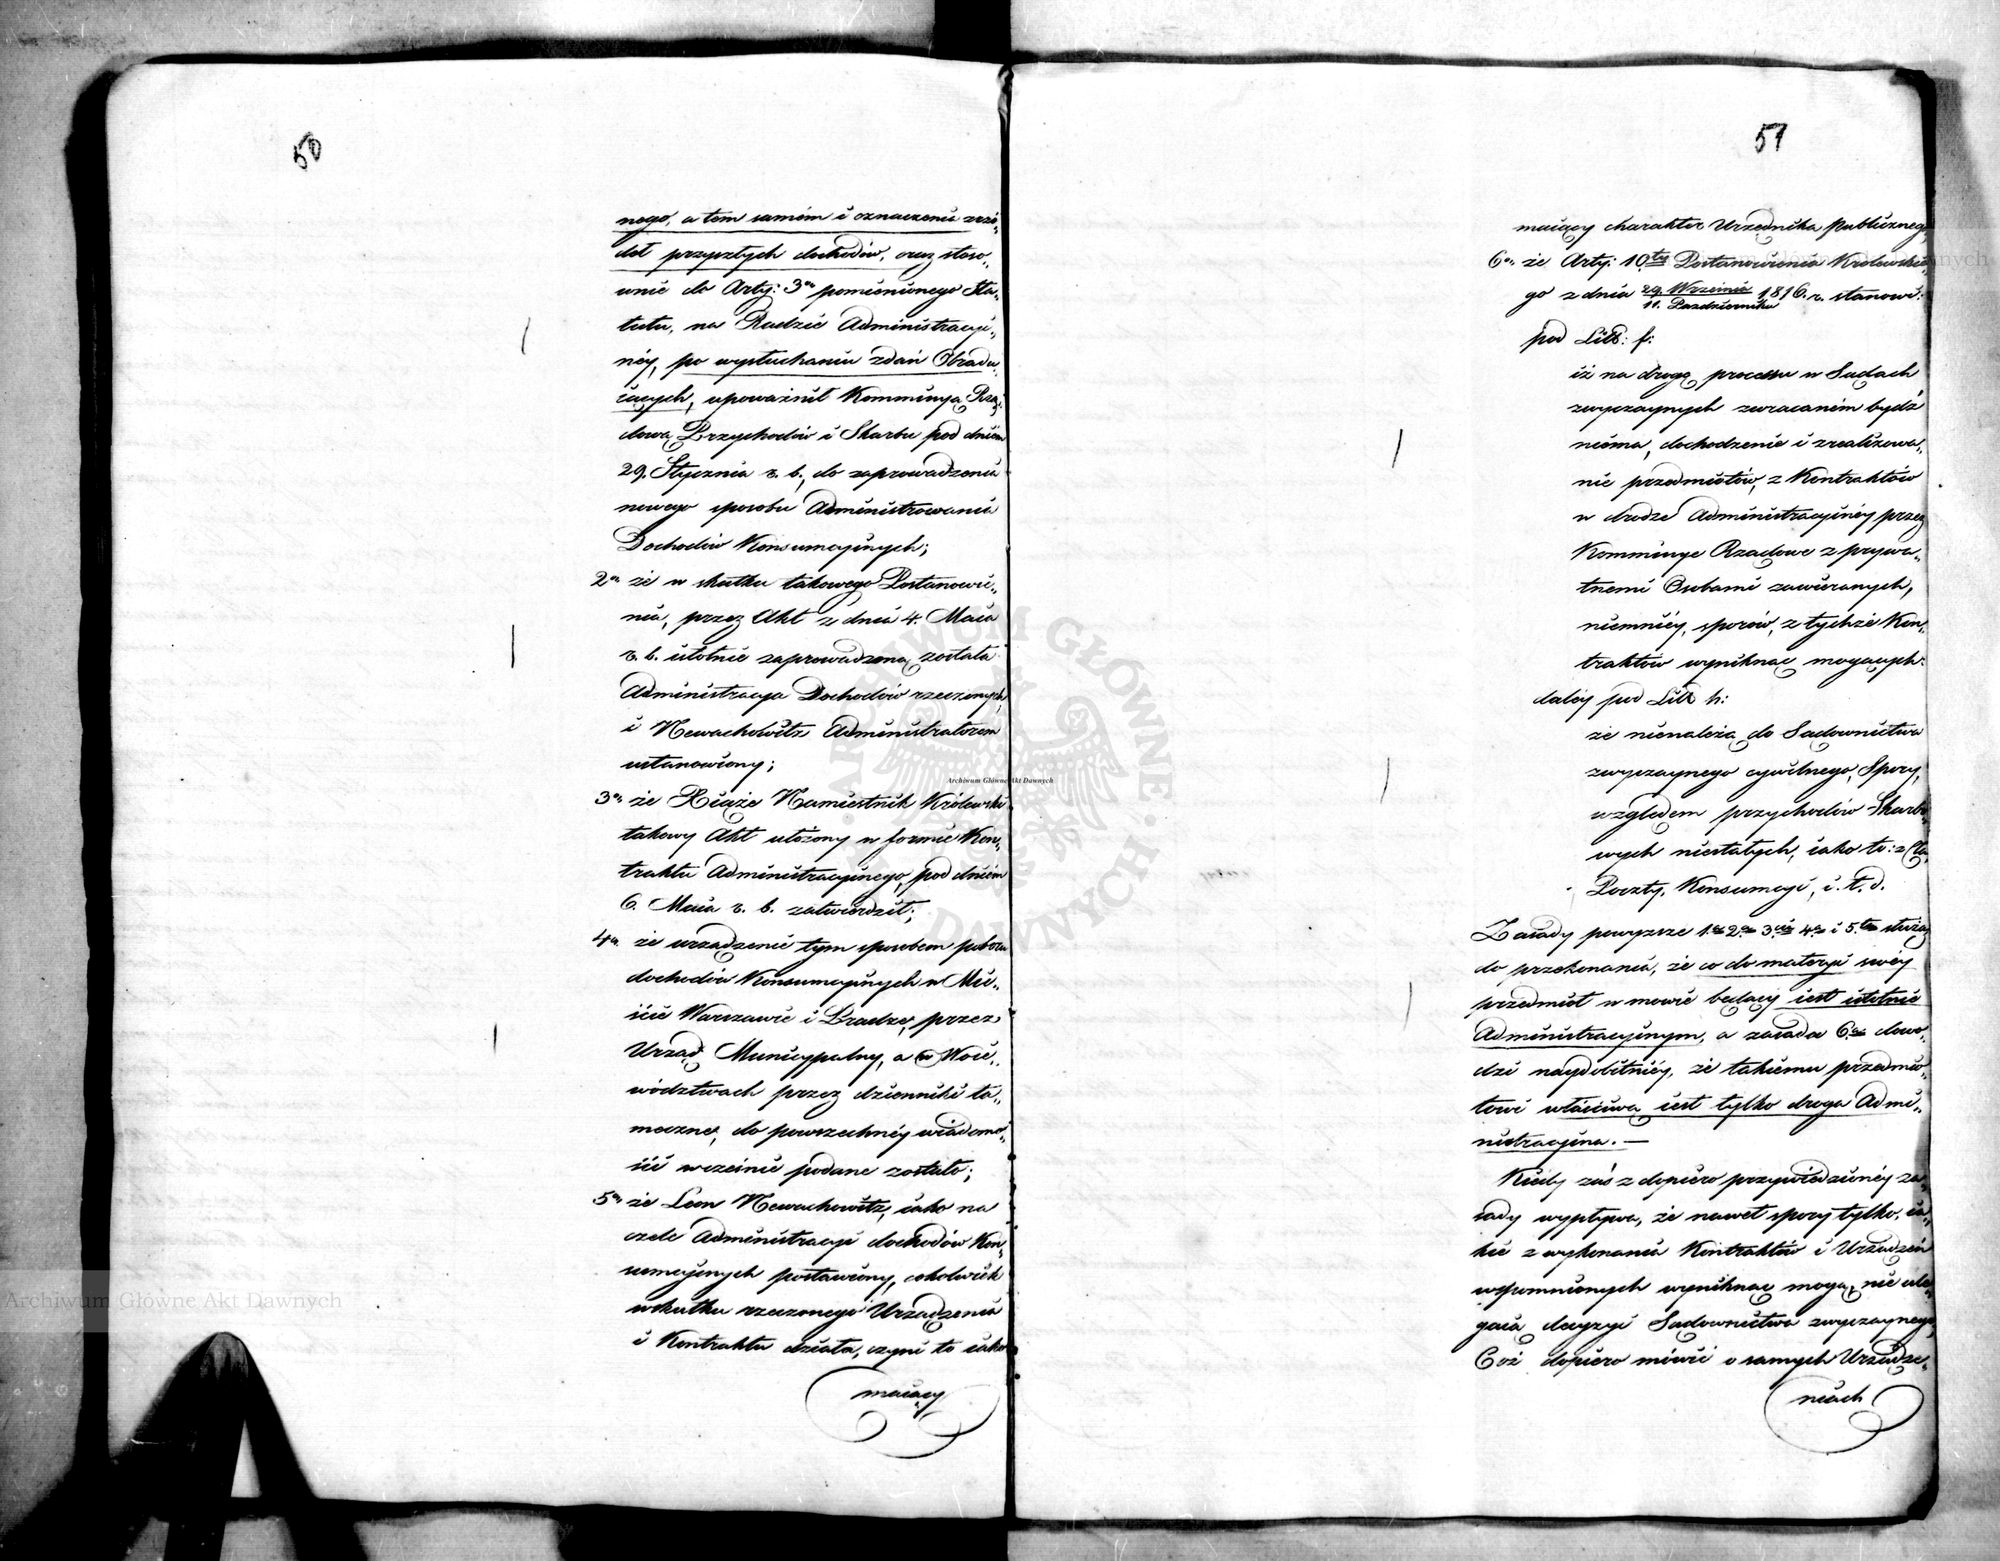 50
nego, a tem samém i oznaczenia zrzó„
deł przyszłych dochodów, oraz stoso„
wnie do Arty: 3º pomienionego Sta„
tutu, na Radzie Administracyi„
néy, po wysłuchaniu zdań Obradu„
iących, upoważnił Kommissyą Rzą„
dową Przychodów i Skarbu pod dniem
29. Stycznia r. b., do zaprowadzenia
nowego sposobu Administrowania
Dochodów Konsumcyinych;
2º że w skutku takowego Postanowie„
nia, przez Akt z dnia 4. Maia
r. b. istotnie zaprowadzoną została
Administracya Dochodów rzeczonych,
i Newachowitz Administratorem
ustanowiony;
3º że Xiąże Namiestnik Królewski
takowy Akt ułożony w formie Kon„
traktu Administracyinego, pod dniem
6. Maia r. b. zatwierdził;
4º że urządzenie tym sposobem poboru
dochodów Konsumcyinych w Mie„
ście Warszawie i Pradze, przez
Urząd Municypalny, a w Woie„
wództwach przez dzienniki ta„
meczne, do powszechnéy wiadomo„
ści wcześnie podane zostało;
5º że Leon Newachowitz, iako na
czele Administracyi dochodów Kon„
sumcyinych postawiony, cokolwiek
wskutku rzeczonego Urządzenia
i Kontraktu działa, czyni to iako
maiący
51
maiący charakter Urzędnika publicznego,
6º że Arty: 10ty Postanowienia Królewskie„
go z dnia 29. Wrześnie / 11. Październiku 1816. r. stanowi:
pod Litt: f:
iż na drogą processu w Sądach
zwyczaynych zwracaném bydź
niéma, dochodzenie i zrealizowa„
nie przedmiotów, z Kontraktów
w drodze Administracyinéy przez
Kommissye Rządowe z prywa„
tnemi Osobami zawieranych,
niemniéy, sporów, z tychże Kon„
traktów wyniknąć mogących:
daléy pod Litt h:
że nienależą do Sądownictwa
zwyczaynego cywilnego, Spory,
względem przychodów Skarbo„
wych niestałych, iako to: z Cła,
Poczty, Konsumcyi, i. t. d.
Zasady powyższe 1sza 2ga 3cia 4ta i 5ta służą
do przekonania, że co do materyi swéy
przedmiot w mowie będący iest istotnie
Administracyinym, a zasada 6ta dowo„
dzi naydobitniéy, że takiemu przedmio„
towi właściwą iest tylko droga Admi„
nistracyina. —
Kiedy zaś z dopiero przywiedzionéy za„
sady wypływa, że nawet spory tylko, ia„
kie z wykonania Kontraktów i Urządzeń
wspomnionych wyniknąć mogą, nie ule„
gaią decyzyi Sądownictwa zwyczaynego,
Coż dopiero mówić o samych Urządze„
niach
Archiwum Główne Akt Dawnych